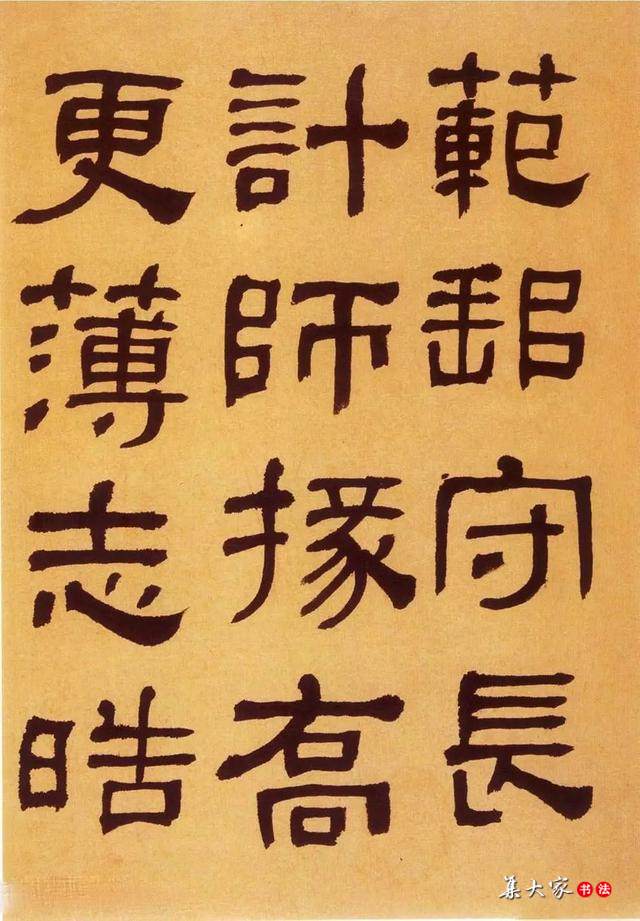 範郵守長
計師掾喬
更薄志晧
集大家书法